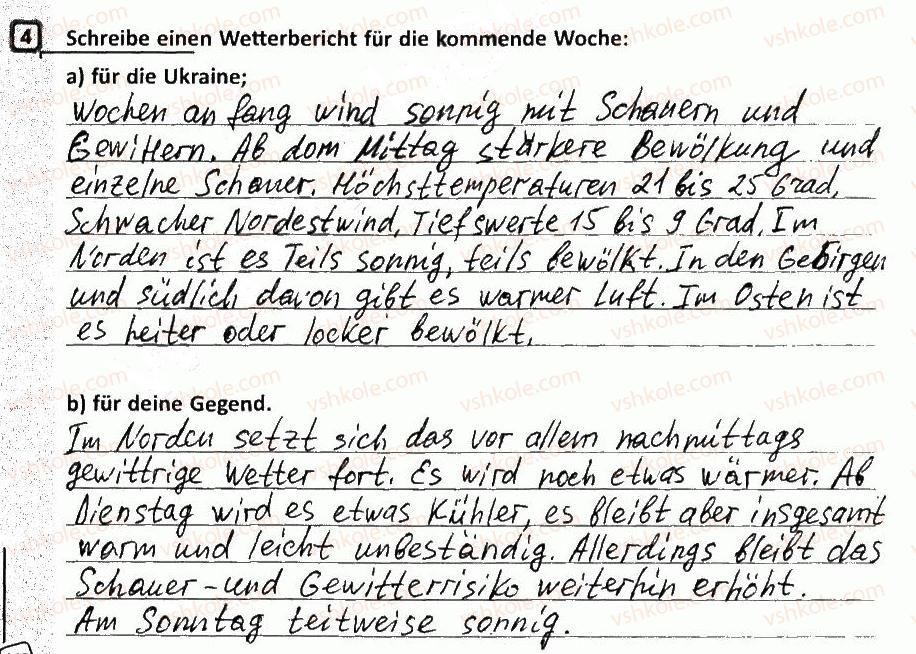 4 Schreibe einen Wetterbericht für die kommende Woche:
a) für die Ukraine;
Wochen an fang wind sonnig mit Schauern und
Gewittern. Ab dom Mittag stärkere Bewölkung und
einzelne Schauer. Höchsttemperaturen 21 bis 25 Grad.
Schwacher Nordestwind, Tiefswerte 15 bis 9 Grad. Im
Norden ist es Teils sonnig, teils bewölkt. In den Gebirgen
und südlich davon gibt es warmer Luft. Im Osten ist
es heiter oder locker bewölkt.
b) für deine Gegend.
Im Norden setzt sich das vor allem nachmittags
gewittrige Wetter fort. Es wird noch etwas wärmer. Ab
Dienstag wird es etwas Kühler, es bleibt aber insgesamt
warm und leicht unbeständig. Allerdings bleibt das
Schauer-und Gewitterrisiko weiterhin erhöht.
Am Sonntag teitweise sonnig.
vshkole.com